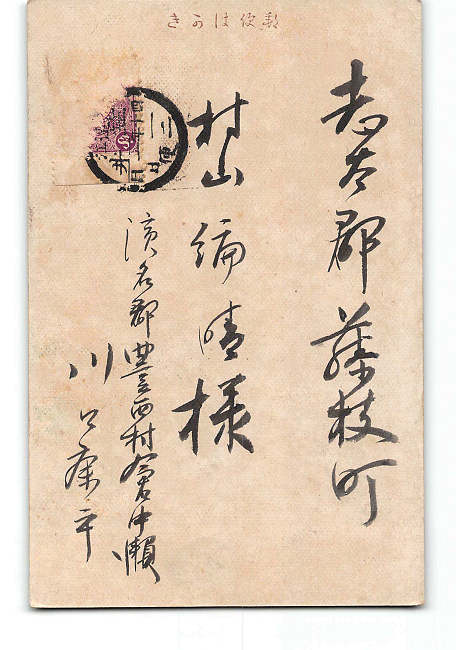 郵便はかき
志太郡藤枝町
村山編晴様
濱名郡豊西村倉中瀬
川口康平